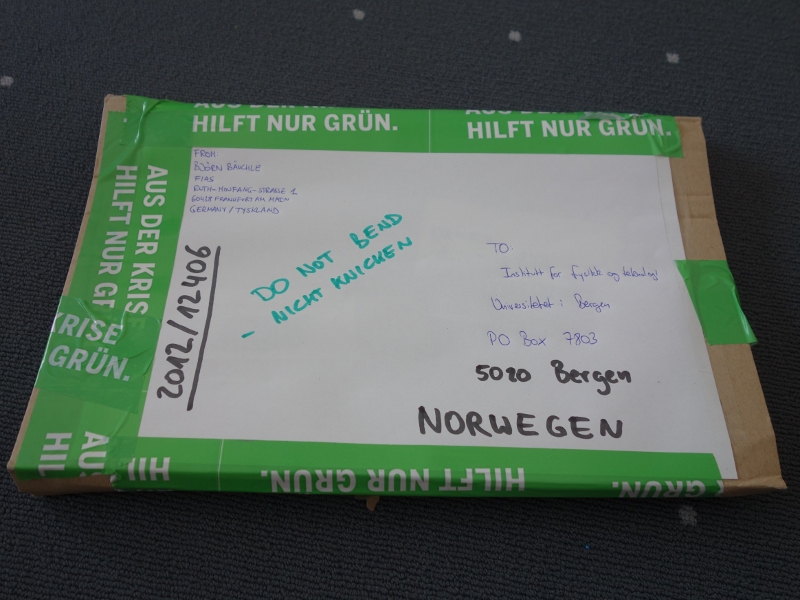 AUS DER KRISE
HILFT NUR GRÜN.
HILFT NUR GRÜN.
AUS DER KRISE
HILFT NUR GR
KRISE
GRÜN.
FROM:
BJÖRN BÄUCHLE
FIAS
RUTH-MOUFANG-STRASSE 1
60438 FRANKFURT AM MAIN
GERMANY / TYSKLAND
2012/12406
DO NOT BEND
- NICHT KNICKEN
TO:
Institutt for fysikk og teknologi
Universitetet i Bergen
PO Box 7803
5020 Bergen
NORWEGEN
AU
HIL
HIL
HILFT NUR GRÜN.
GRÜN.